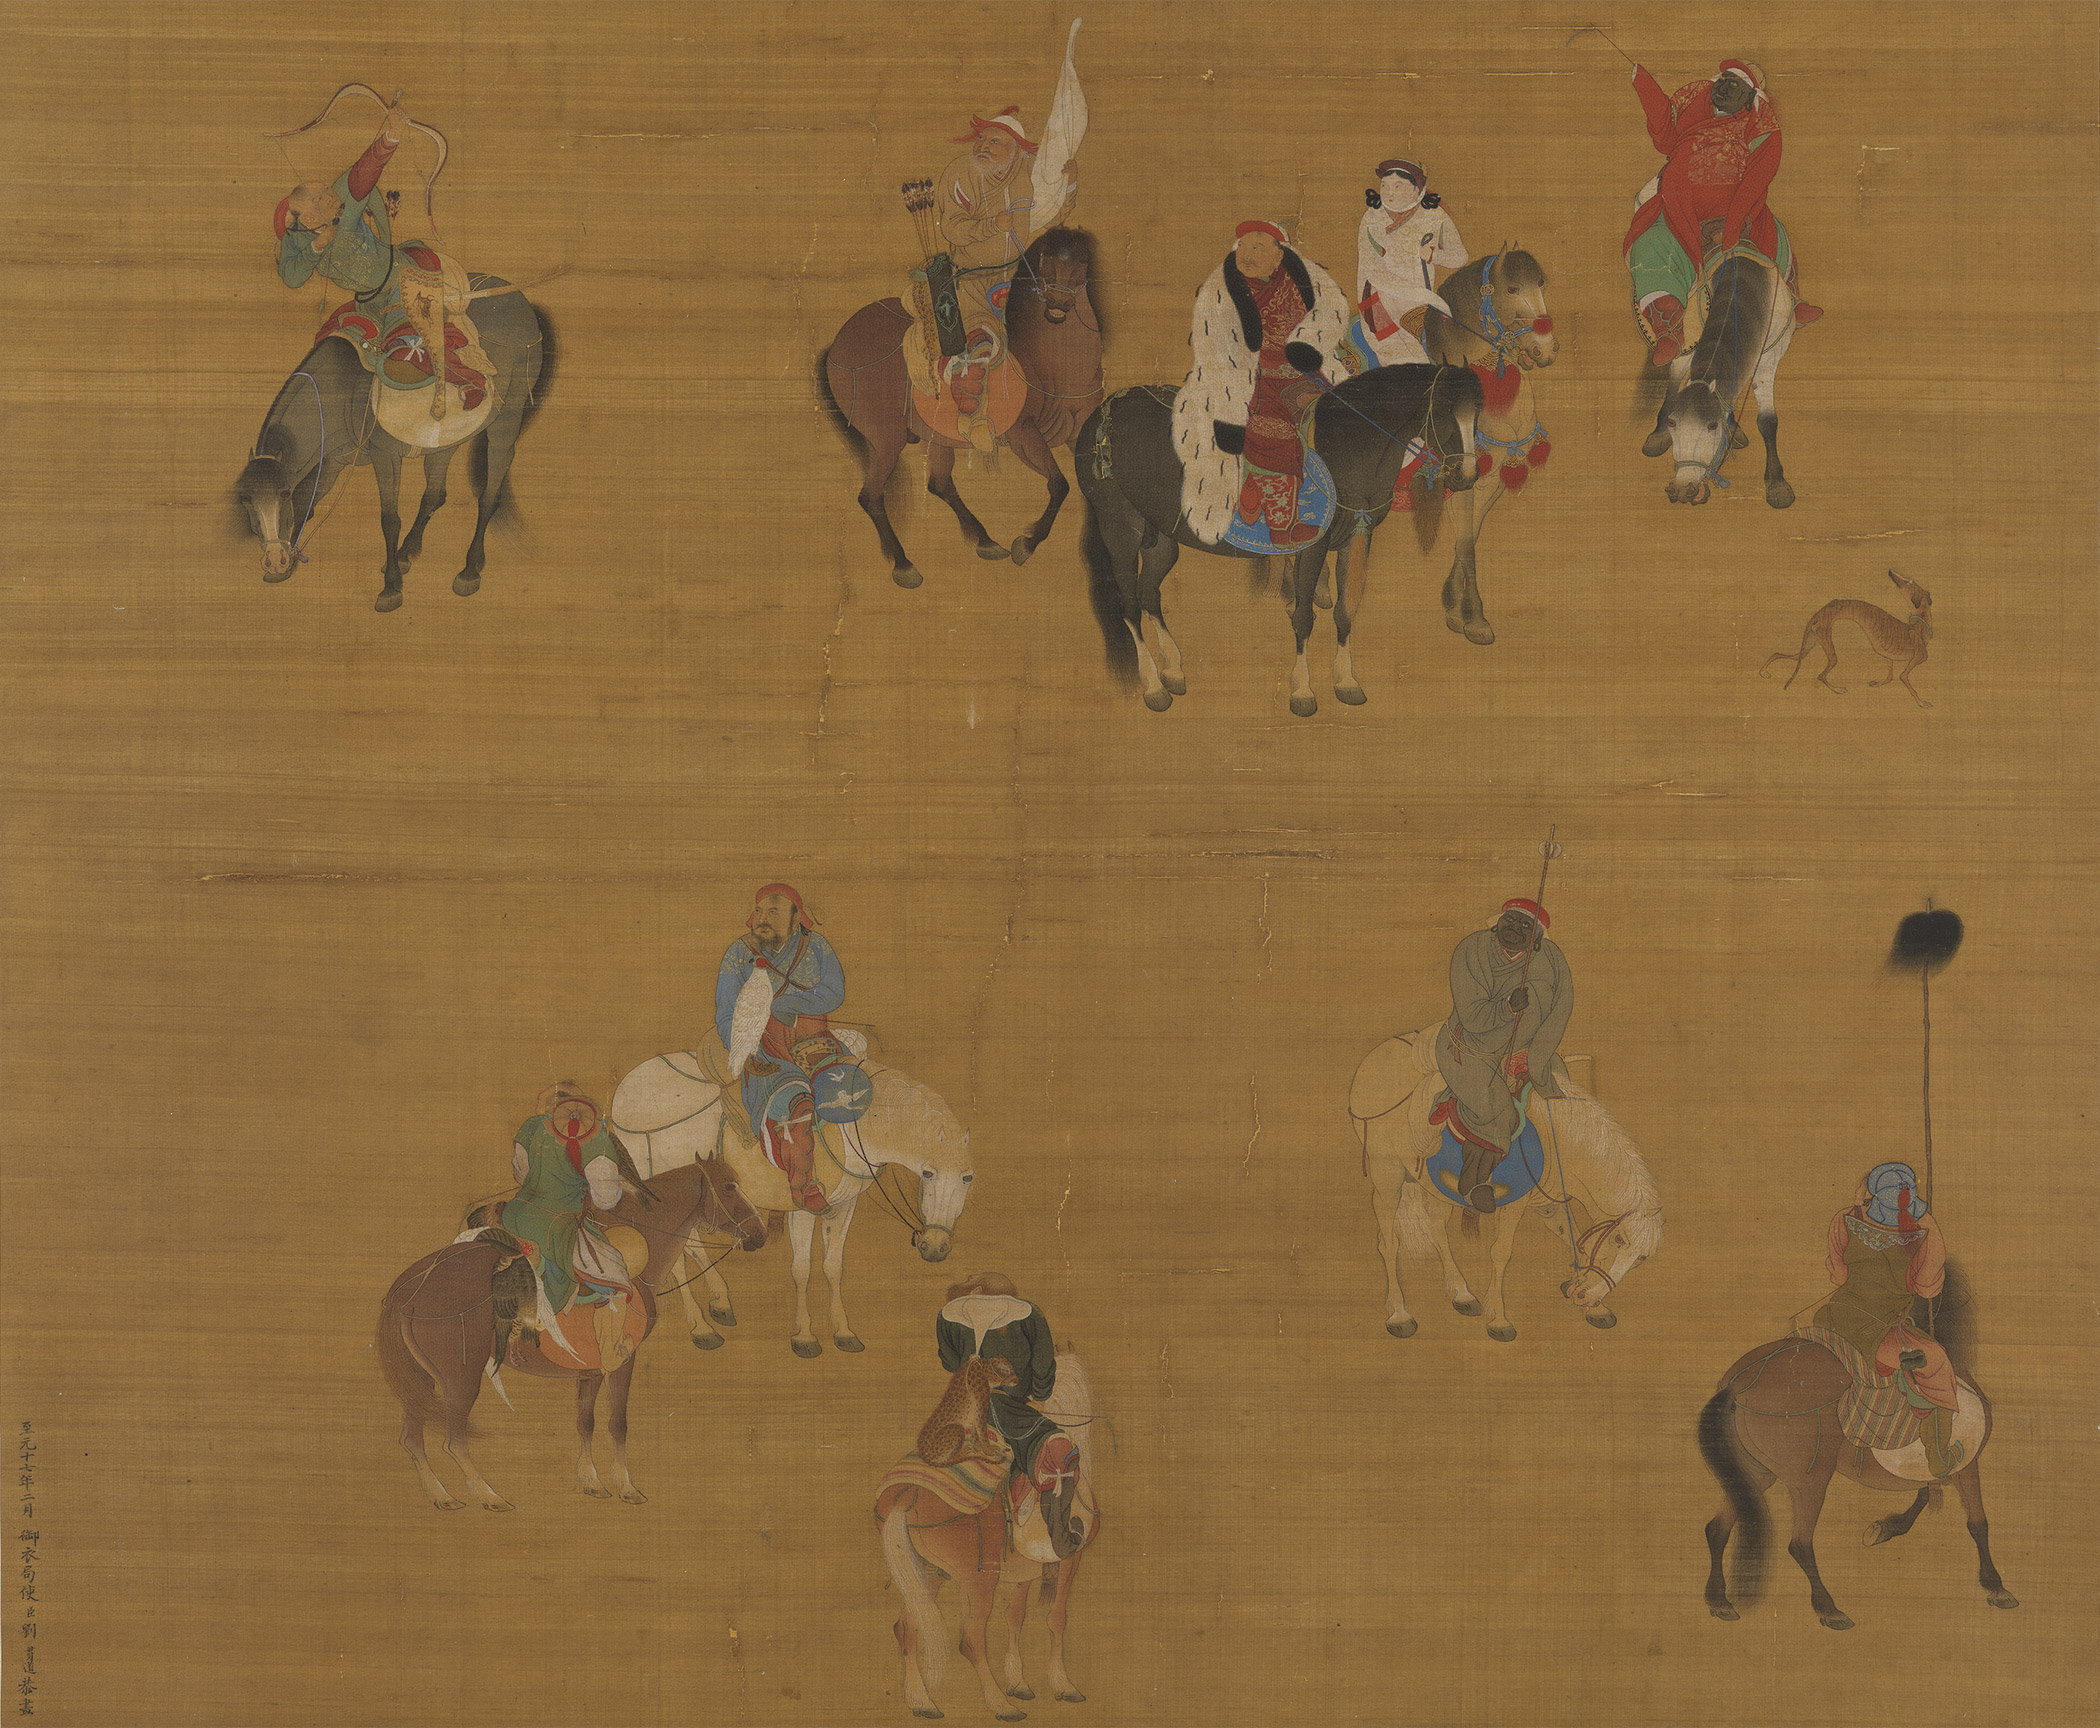 至元十七年二月 御衣局使臣劉 貫道恭畫